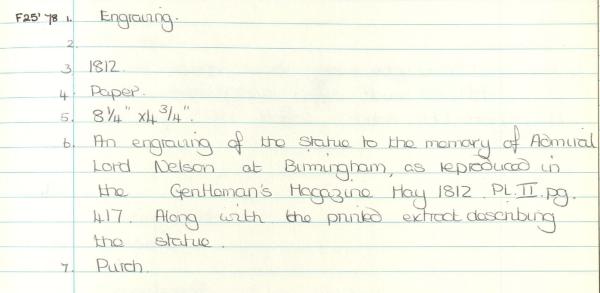 F25'78 1. Engraving.
2.
3. 1812.
4. Paper.
5. 8 1/4" x 4 3/4".
6. An engraving of the statue to the memory of Admiral
Lord Nelson at Birmingham, as reproduced in
the Gentleman's Magazine May 1812. PL. II. pg.
417. Along with the printed extract describing
the statue.
7. Purch.